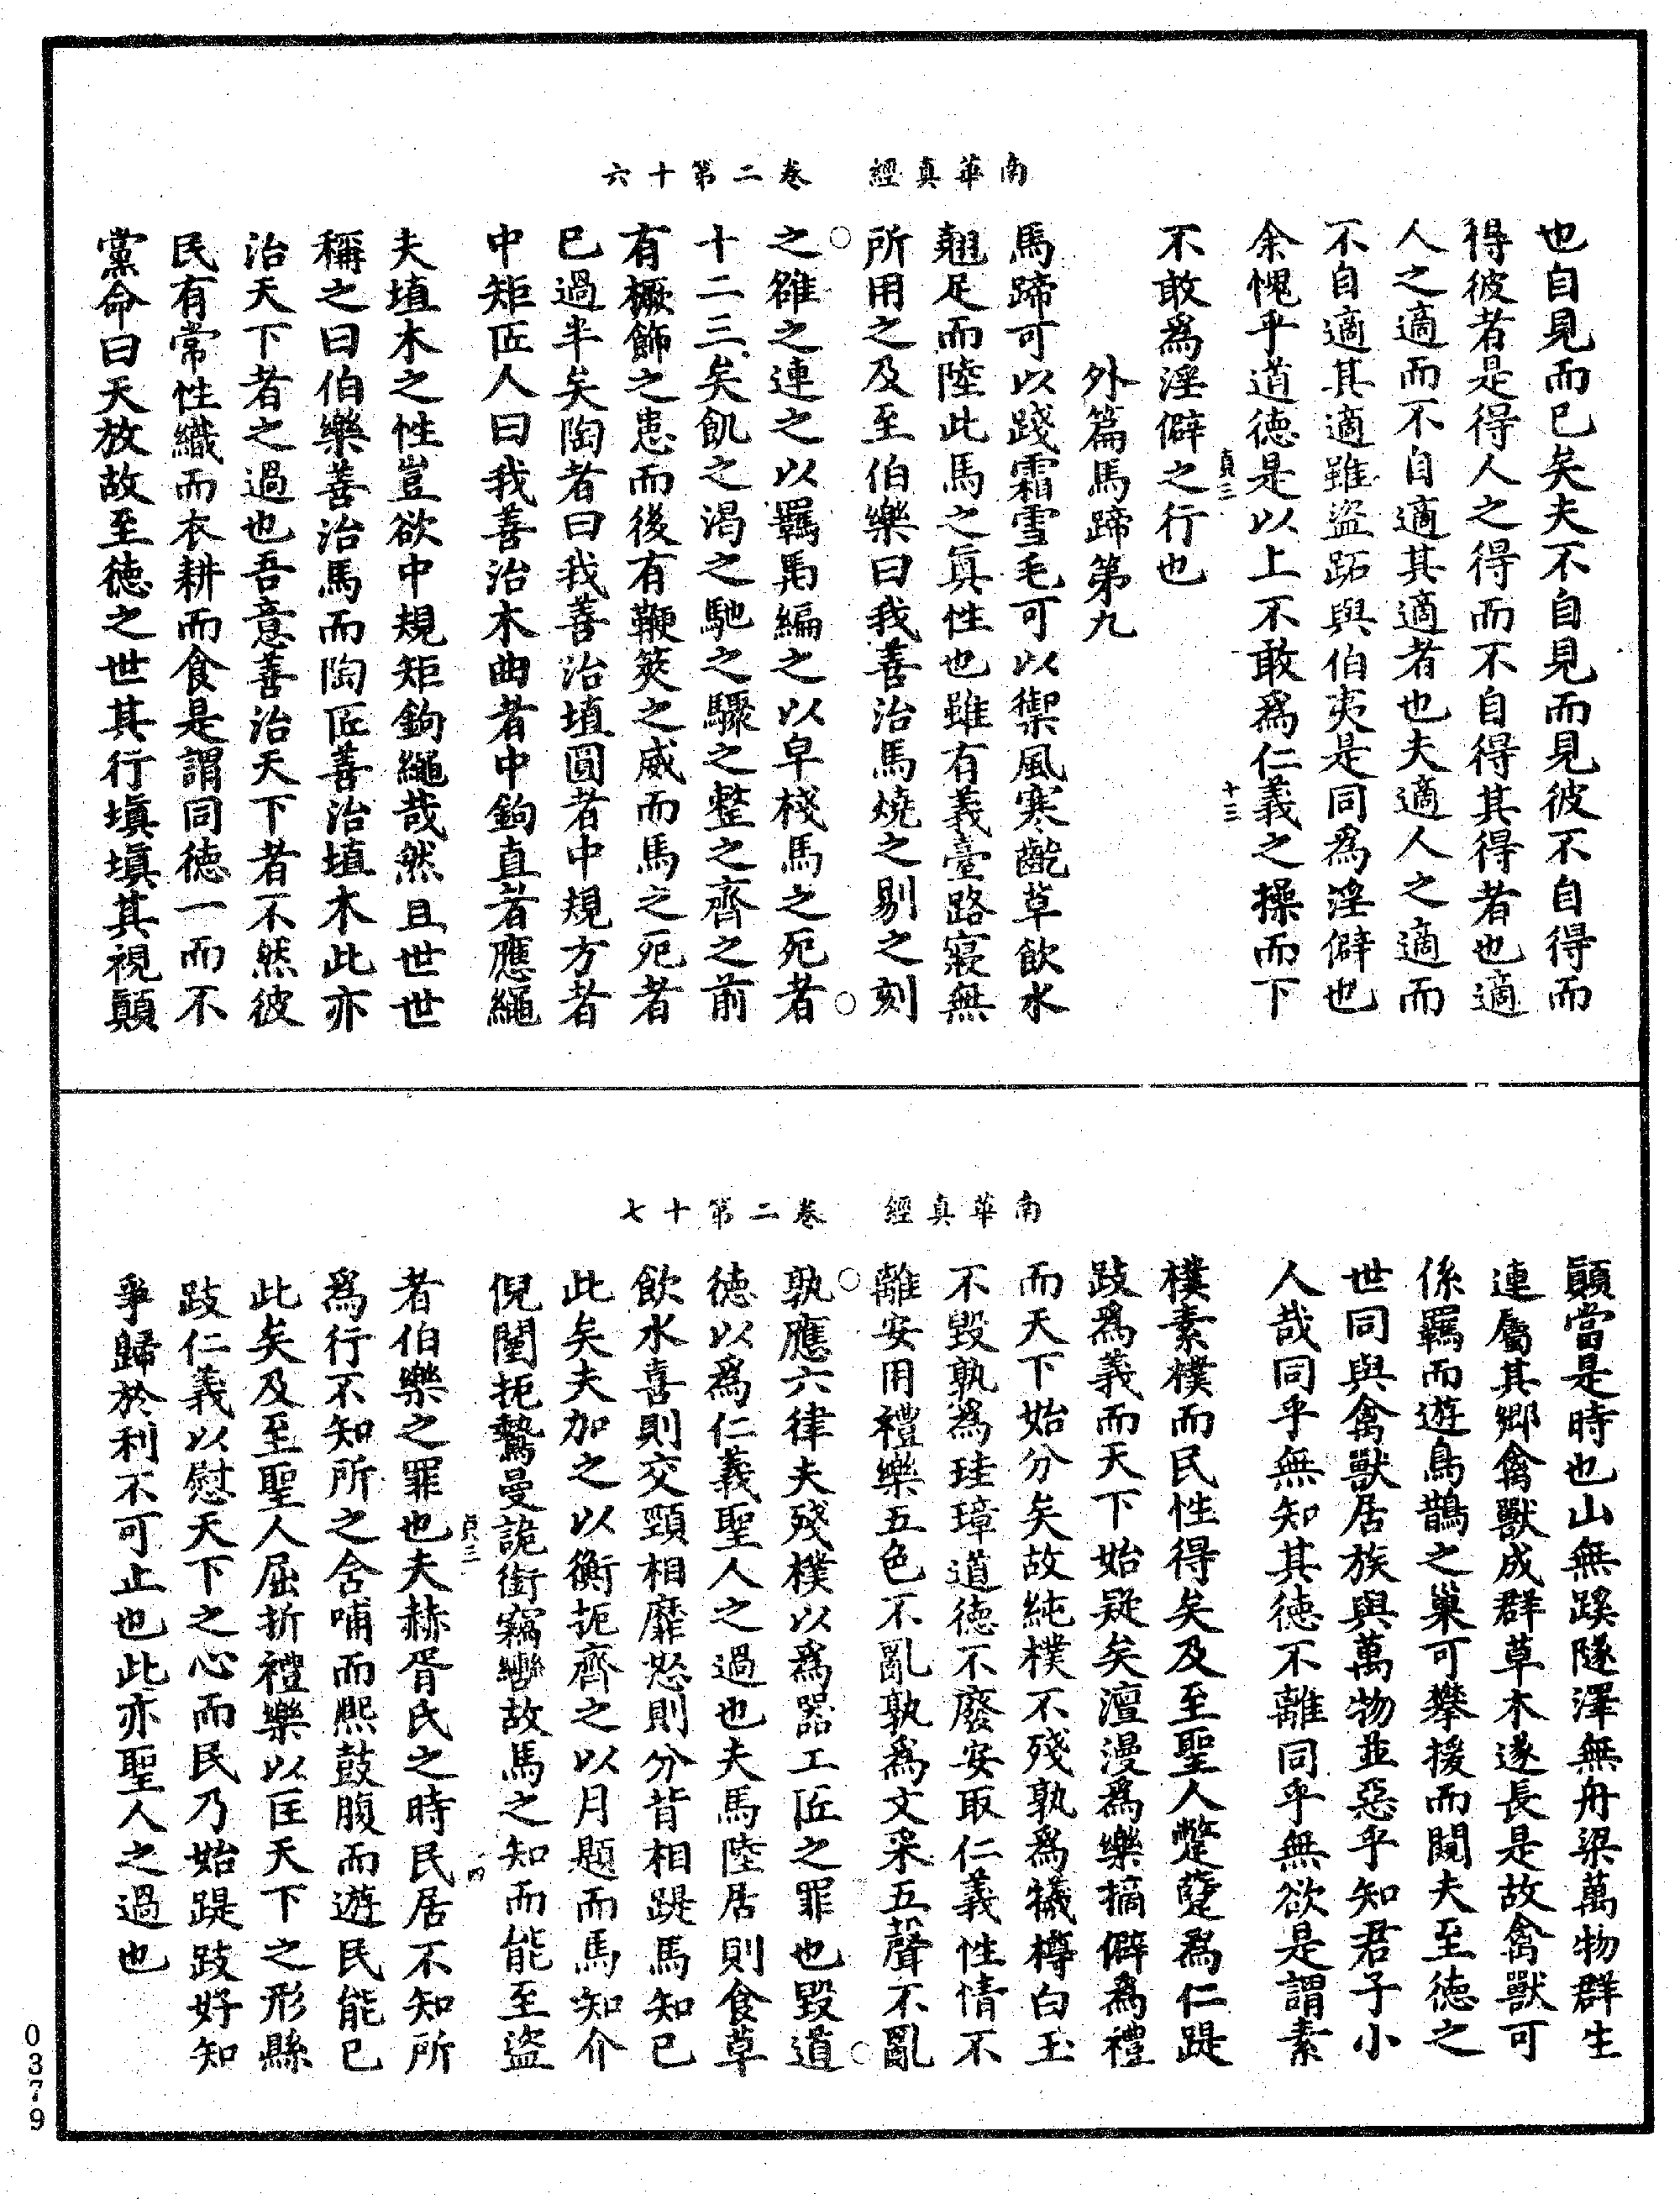 南華真經　卷二第十六
也自見而已矣夫不自見而見彼不自得而
得彼者是得人之得而不自得其得者也適
人之適而不自適其適者也夫適人之適而
不自適其適雖盜跖與伯夷是同爲淫僻也
余愧乎道德是以上不敢爲仁義之操而下
貞三　十三
不敢爲淫僻之行也
外篇馬蹄第九
馬蹄可以踐霜雪毛可以禦風寒齕草飲水
翹足而陸此馬之眞性也雖有義臺路寢無
所用之及至伯樂曰我善治馬燒之剔之刻
之雒之連之以羈馽編之以皁棧馬之死者
十二三矣飢之渴之馳之驟之整之齊之前
有橛飾之患而後有鞭筴之威而馬之死者
已過半矣陶者曰我善治埴圓者中規方者
中矩匠人曰我善治木曲者中鉤直者應繩
夫埴木之性豈欲中規矩鉤繩哉然且世世
稱之曰伯樂善治馬而陶匠善治埴木此亦
治天下者之過也吾意善治天下者不然彼
民有常性織而衣耕而食是謂同德一而不
黨命曰天放故至德之世其行塡塡其視顚
南華真經　卷二第十七
顚當是時也山無蹊隧澤無舟梁萬物群生
連屬其鄉禽獸成群草木遂長是故禽獸可
係羈而遊鳥鵲之巢可攀援而闚夫至德之
世同與禽獸居族與萬物並惡乎知君子小
人哉同乎無知其德不離同乎無欲是謂素
樸素樸而民性得矣及至聖人蹩躠爲仁踶
跂爲義而天下始疑矣澶漫爲樂摘僻爲禮
而天下始分矣故純樸不殘孰爲犧樽白玉
不毀孰爲珪璋道德不廢安取仁義性情不
離安用禮樂五色不亂孰爲文采五聲不亂
孰應六律夫殘樸以爲器工匠之罪也毀道
德以爲仁義聖人之過也夫馬陸居則食草
飲水喜則交頸相靡怒則分背相踶馬知已
此矣夫加之以衡扼齊之以月題而馬知介
倪闉扼鷙曼詭銜竊轡故馬之知而能至盜
貞三　十四
者伯樂之罪也夫赫胥氏之時民居不知所
爲行不知所之含哺而熙鼓腹而遊民能已
此矣及至聖人屈折禮樂以匡天下之形縣
跂仁義以慰天下之心而民乃始踶跂好知
爭歸於利不可止也此亦聖人之過也
0379